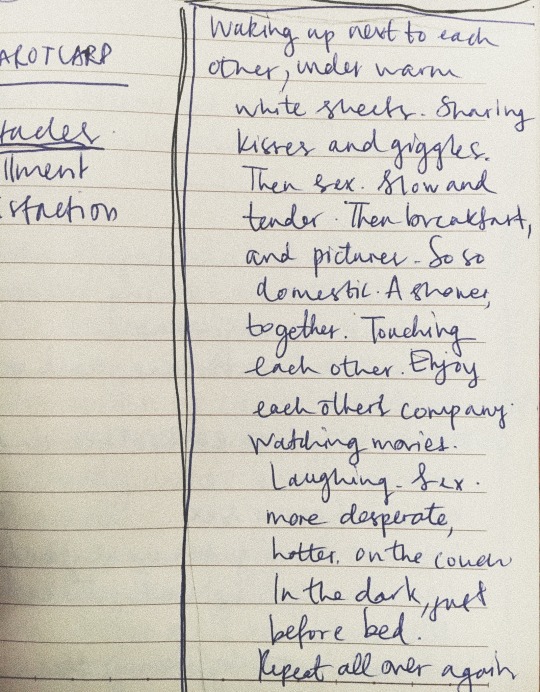 AROTCARD
tacles
llment
isfaction
Waking up next to each
other, under warm
white sheets. Sharing
kisses and giggles.
Then sex. Slow and
tender. Then breakfast,
and pictures. So so
domestic. A shower,
together. Touching
each other. Enjoy
each other's company.
Watching movies.
Laughing. Sex.
more desperate,
hotter. on the couch
In the dark, just
before bed.
Repeat all over again